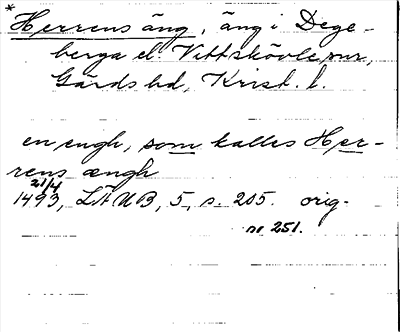 * Herrens äng, äng i Dege-
berga el. Vittskövle snr,
Gärds hd, Krist. l.
en engh, som kalles Her-
rens ængh
21/4
1493, LÄUB, 5, s. 205. orig.
nr 251.